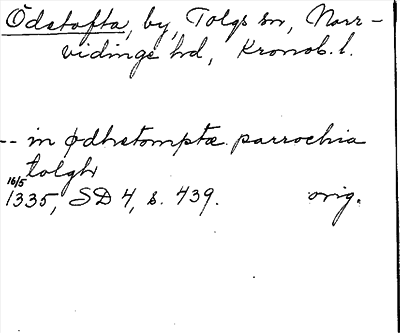 Ödetofta, by, Tolgs sn, Norr-
vidinge hd, Kronob. l.
-- in ødhetomptæ parrochia
tolgh
16/5 1335, SD 4, s. 439. orig.